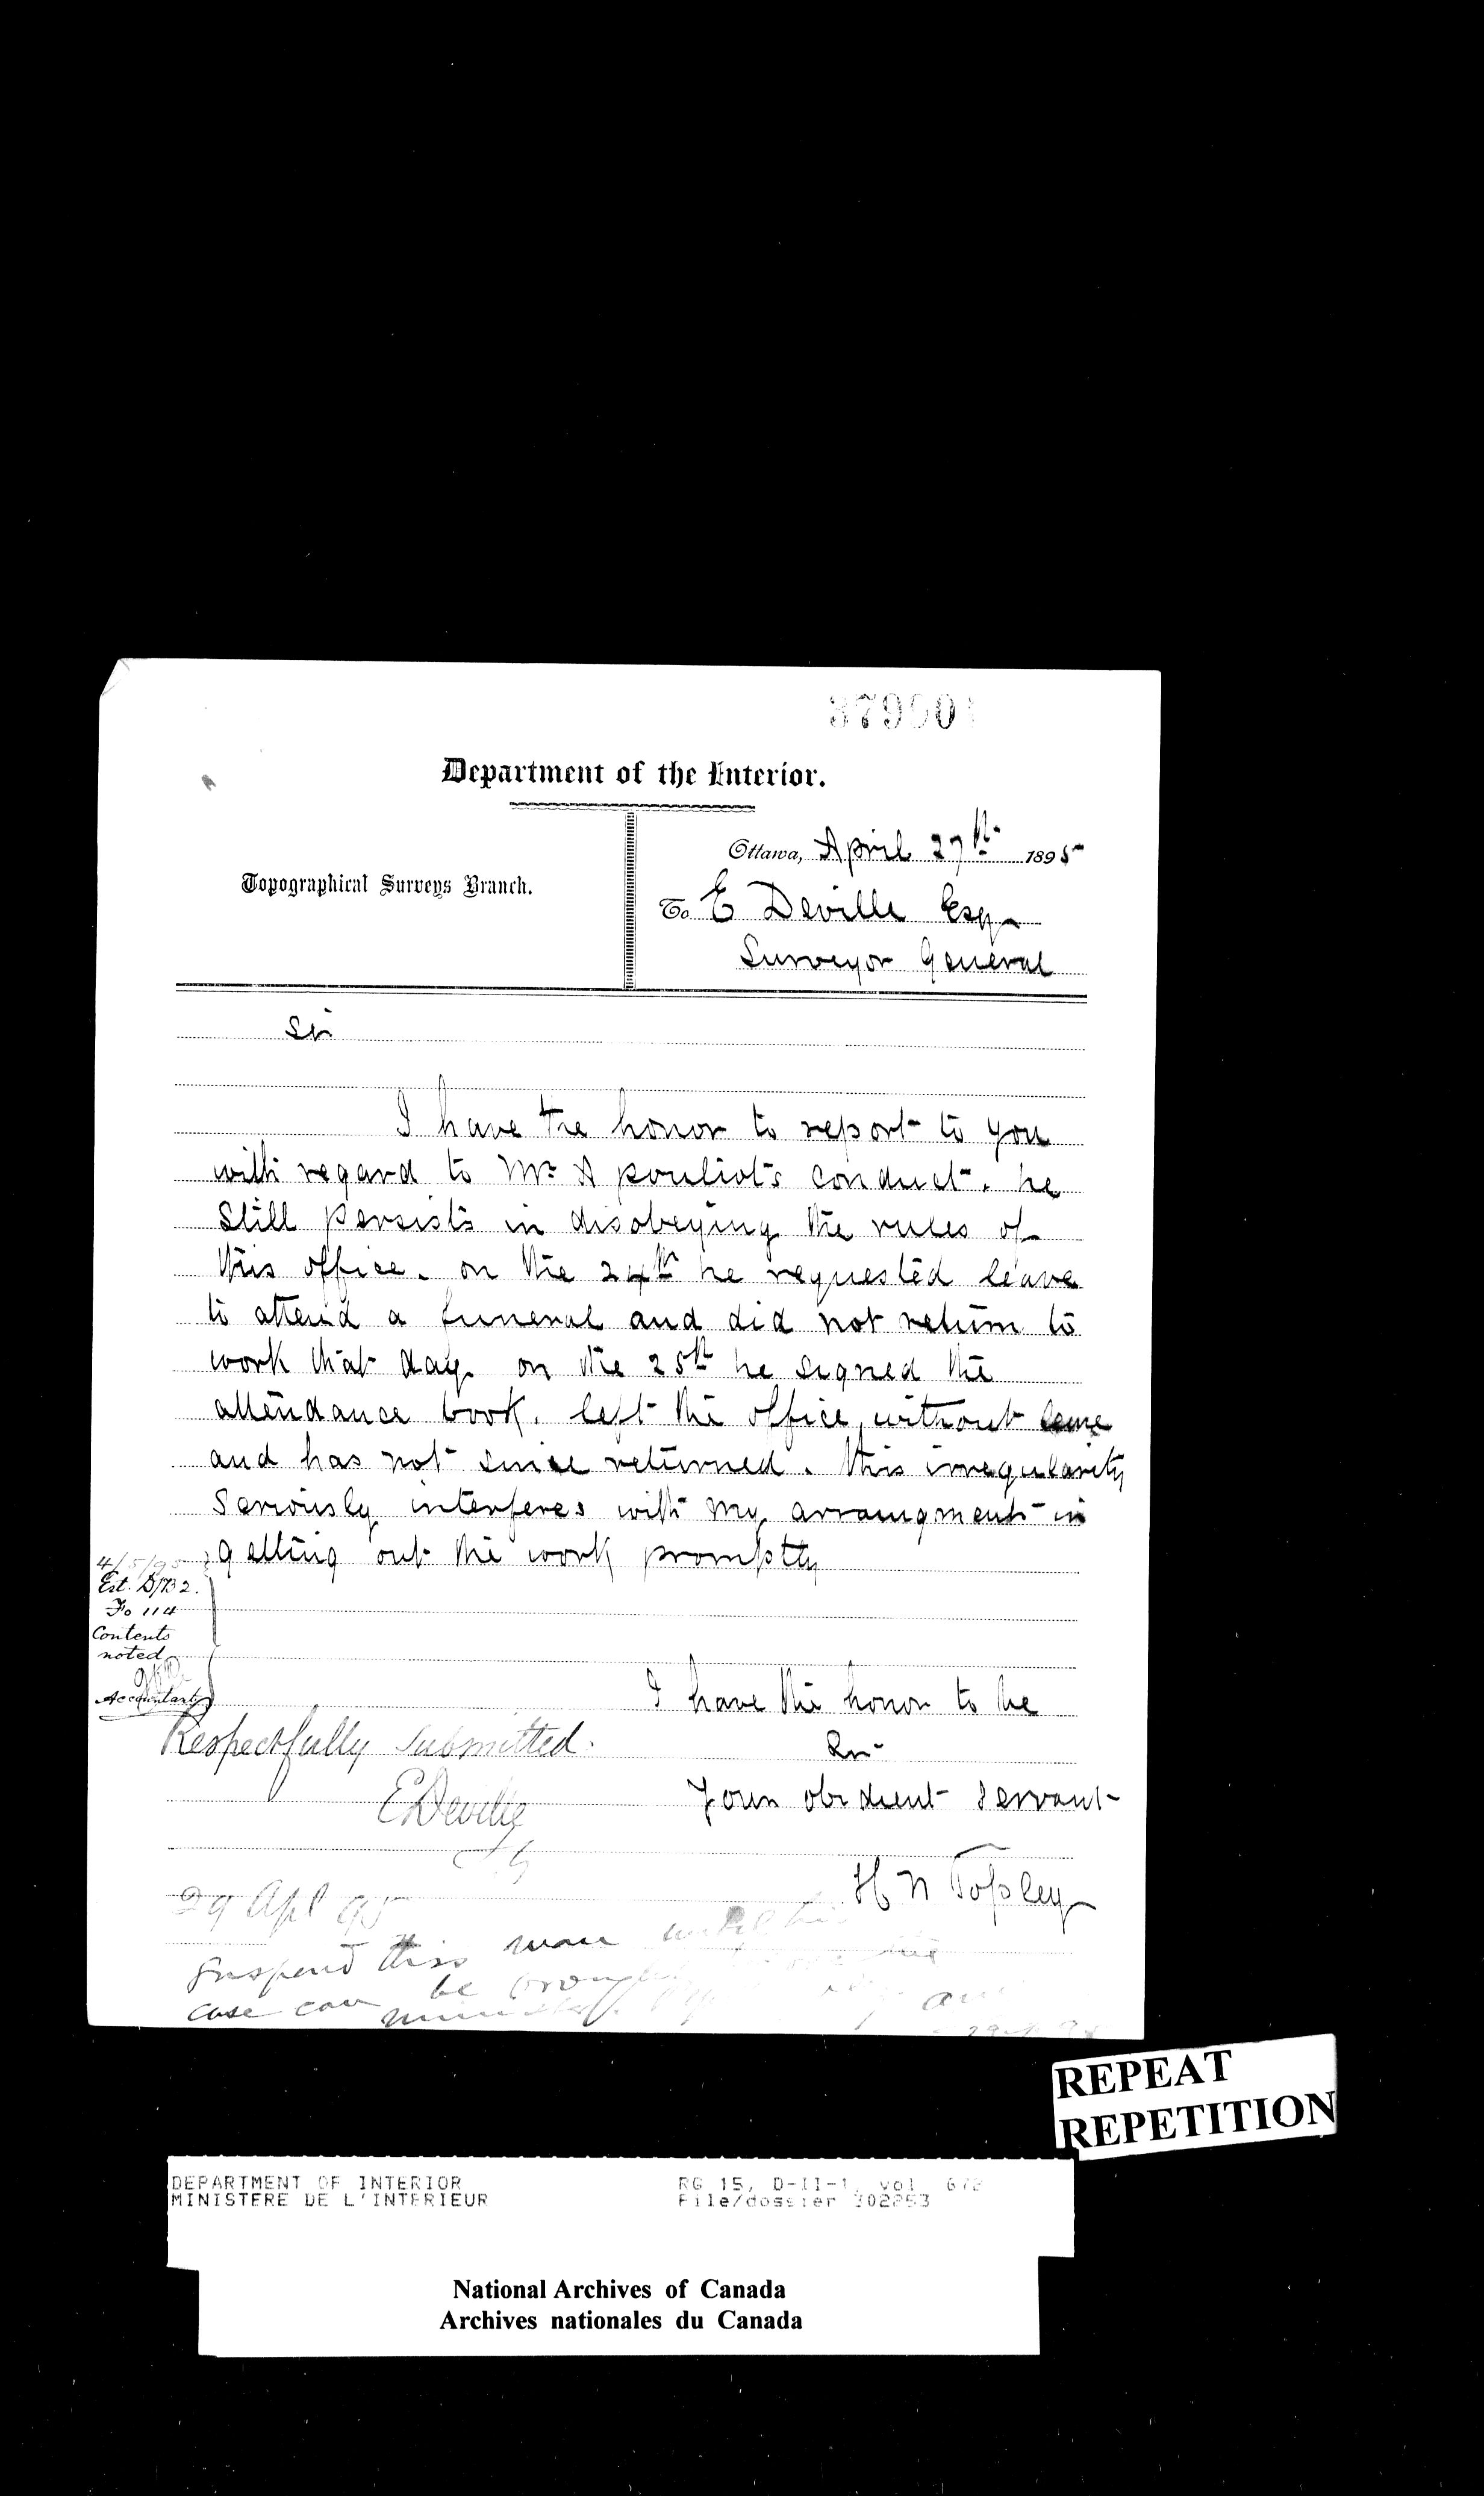 Department of the Interior.
Topographical Surveys Branch.
Ottawa, April 27th 1895
To E Deville Esq
Surveyor General
Sir
I have the honor to report to you
with regard to Mr A pouliot's conduct. he
still persists in disobeying the rules of
this office. on the 24th he requested leave
to attend a funeral and did not return to
work that day on the 25th he signed the
attendance book. left the office, without leave
and has not since returned. this irregularity
seriously interferes with my arraingments in
getting out the work promptly
4/5/95
Est. D/732.
Fo 114
Contents
noted
Accountant
I have the honor to be
Sir
Your obedient servant
H N Topley
Respectfully submitted.
E Deville
S G
29 Apl 95
Suspend this man until his
case can be brought
minister
REPEAT
REPETITION
DEPARTMENT OF INTERIOR
MINISTERE DE L'INTERIEUR
RG 15, D-II-1, vol
File/dossier
National Archives of Canada
Archives nationales du Canada